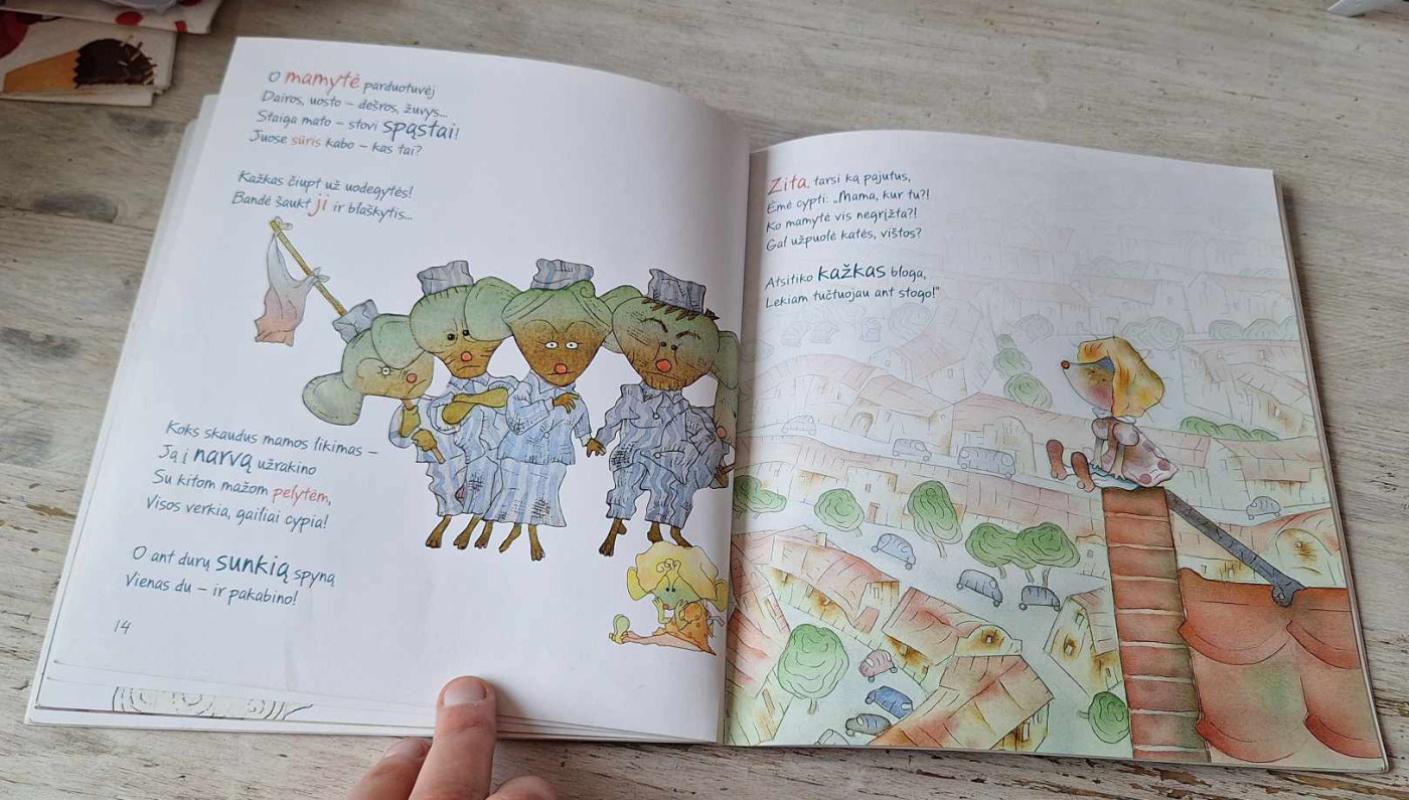 O mamytė parduotuvėj
Dairos, uosto – dešros, žuvys...
Staiga mato – stovi spąstai!
Juose sūris kabo – kas tai?
Kažkas čiupt už uodegytės!
Bandė šaukt ji ir blaškytis...
Koks skaudus mamos likimas –
Ją į narvą užrakino
Su kitom mažom pelytėm,
Visos verkia, gailiai cypia!
O ant durų sunkią spyną
Vienas du – ir pakabino!
14
Zita, tarsi ką pajutus,
Ėmė cypti: „Mama, kur tu?!
Ko mamytė vis negrįžta?!
Gal užpuolė katės, vištos?
Atsitiko kažkas bloga,
Lekiam tučtuojau ant stogo!"